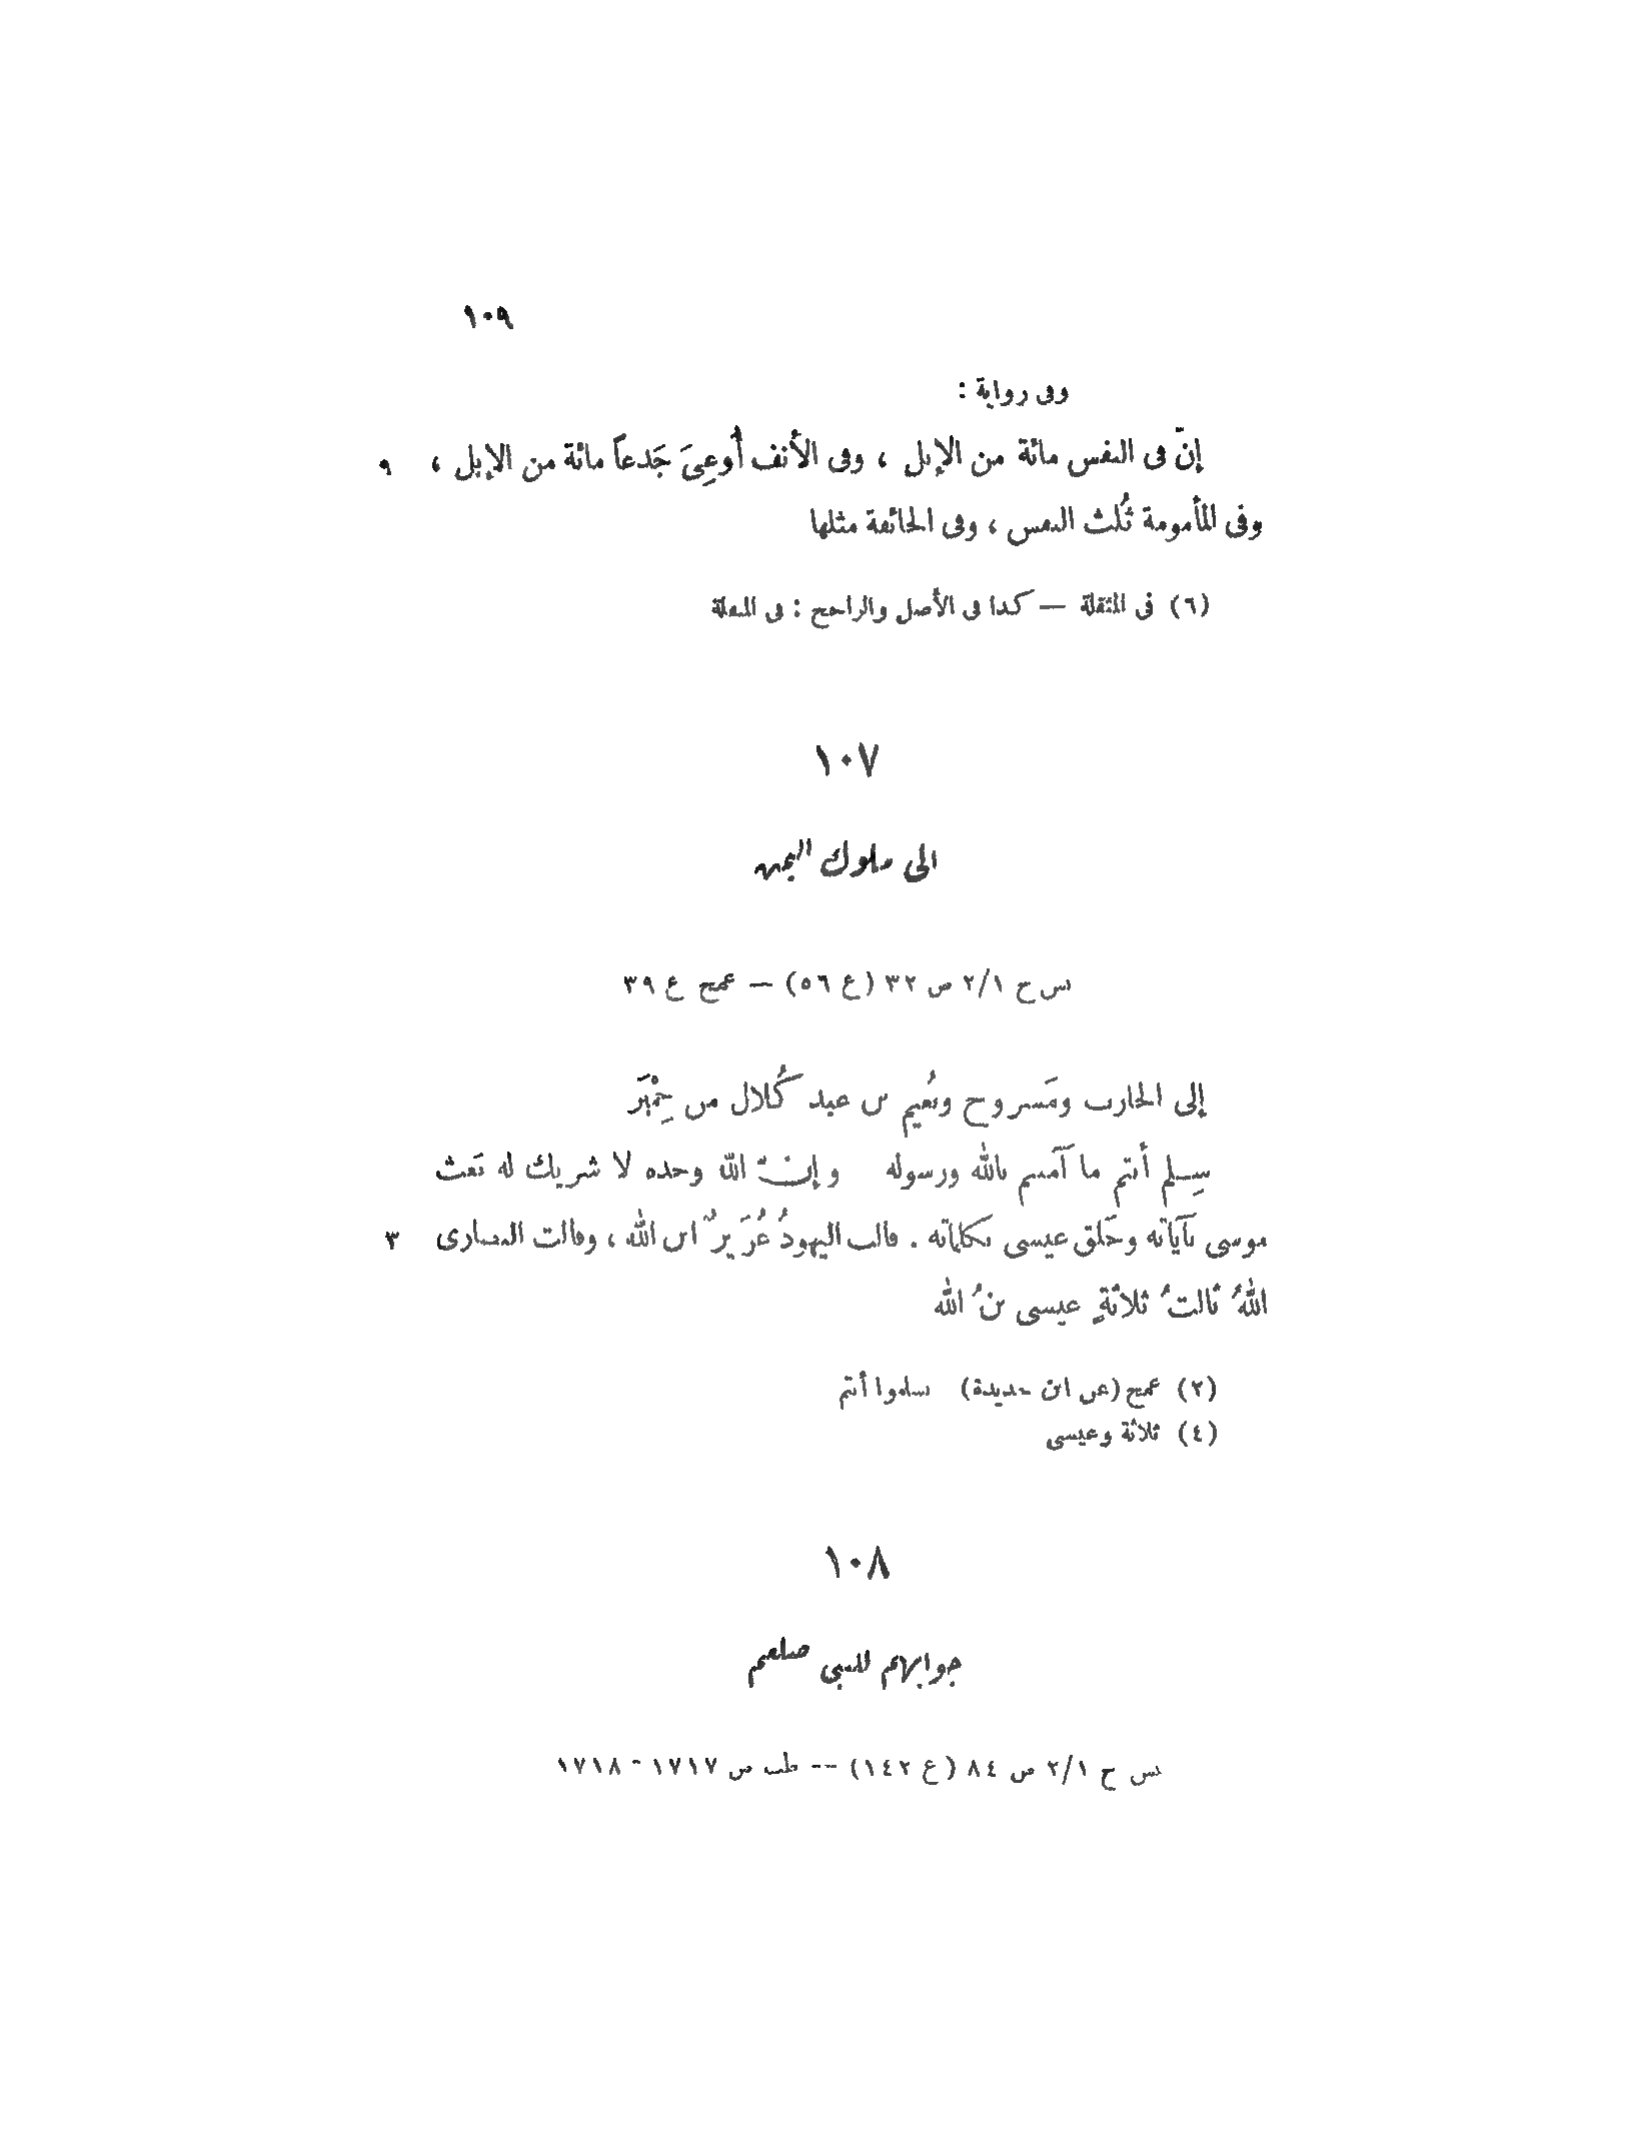 ١٠٩
وفى رواية :
إنّ فى النفس مائة من الإبل ، وفى الأنف أُوعِىَ جَدعاً مائة من الإبل ، ٩
وفى المأمومة ثُلث النفس ، وفى الجائفة مثلها
(٦) فى المثقلة — كذا فى الأصل والراجح : فى المنقلة
١٠٧
الى ملوك اليمن
بس ج ٢/١ ص ٣٢ (ع ٥٦) — عمخ ع ٣٩
إلى الحارث ومَسروح ونُعيم بن عبد كُلال من حِمْيَر
سِلم أنتم ما آمنتم بالله ورسوله وإنّ الله وحده لا شريك له بَعث
موسى بآياته وخَلق عيسى بكلماته . قالت اليهودُ عُزَيرٌ ابن الله ، وقالت النصارى ٣
اللهُ ثالثُ ثلاثةٍ عيسى بنُ الله
(٢) عمخ (عن ابن حديدة) سلموا أنتم
(٤) ثلاثة وعيسى
١٠٨
جوابهم للنبى صلعم
بس ج ٢/١ ص ٨٤ (ع ١٤٢) -- طب ص ١٧١٧ - ١٧١٨